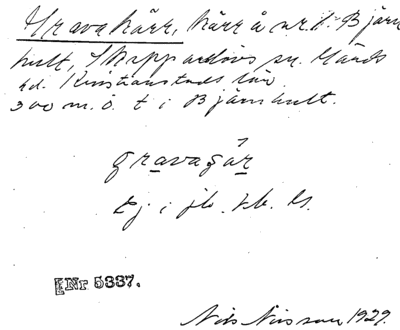 Gravakärr, kärr å nr. 1. Bjärn
hult, Skepparslövs sn. Gärds
hd. Kristianstads län
300 m. ö. t i Bjärnhult.
gravaçär
Ej i jb. Gk. Es.
Nr 5337.
Nils Nilsson 1929.